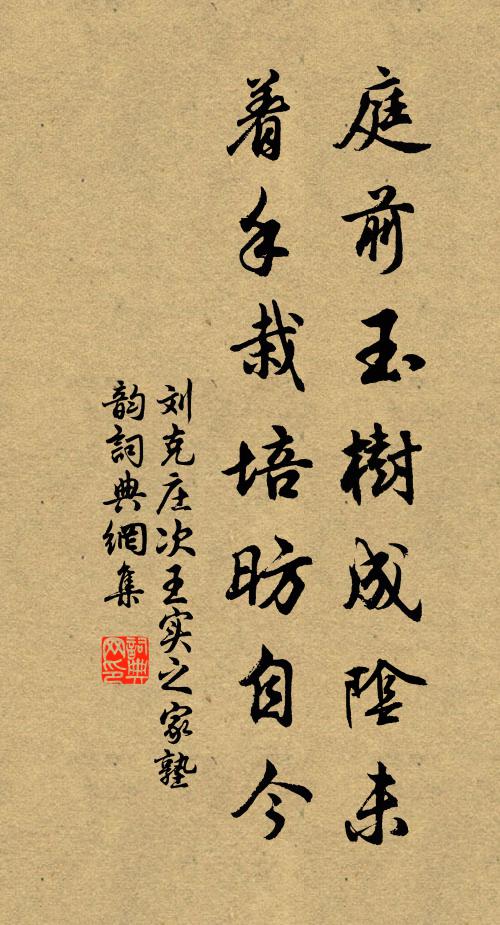 庭前玉樹成陰未
着手栽培昉自今
刘克庄次王实之家塾
韵詞典網集
詞典网印